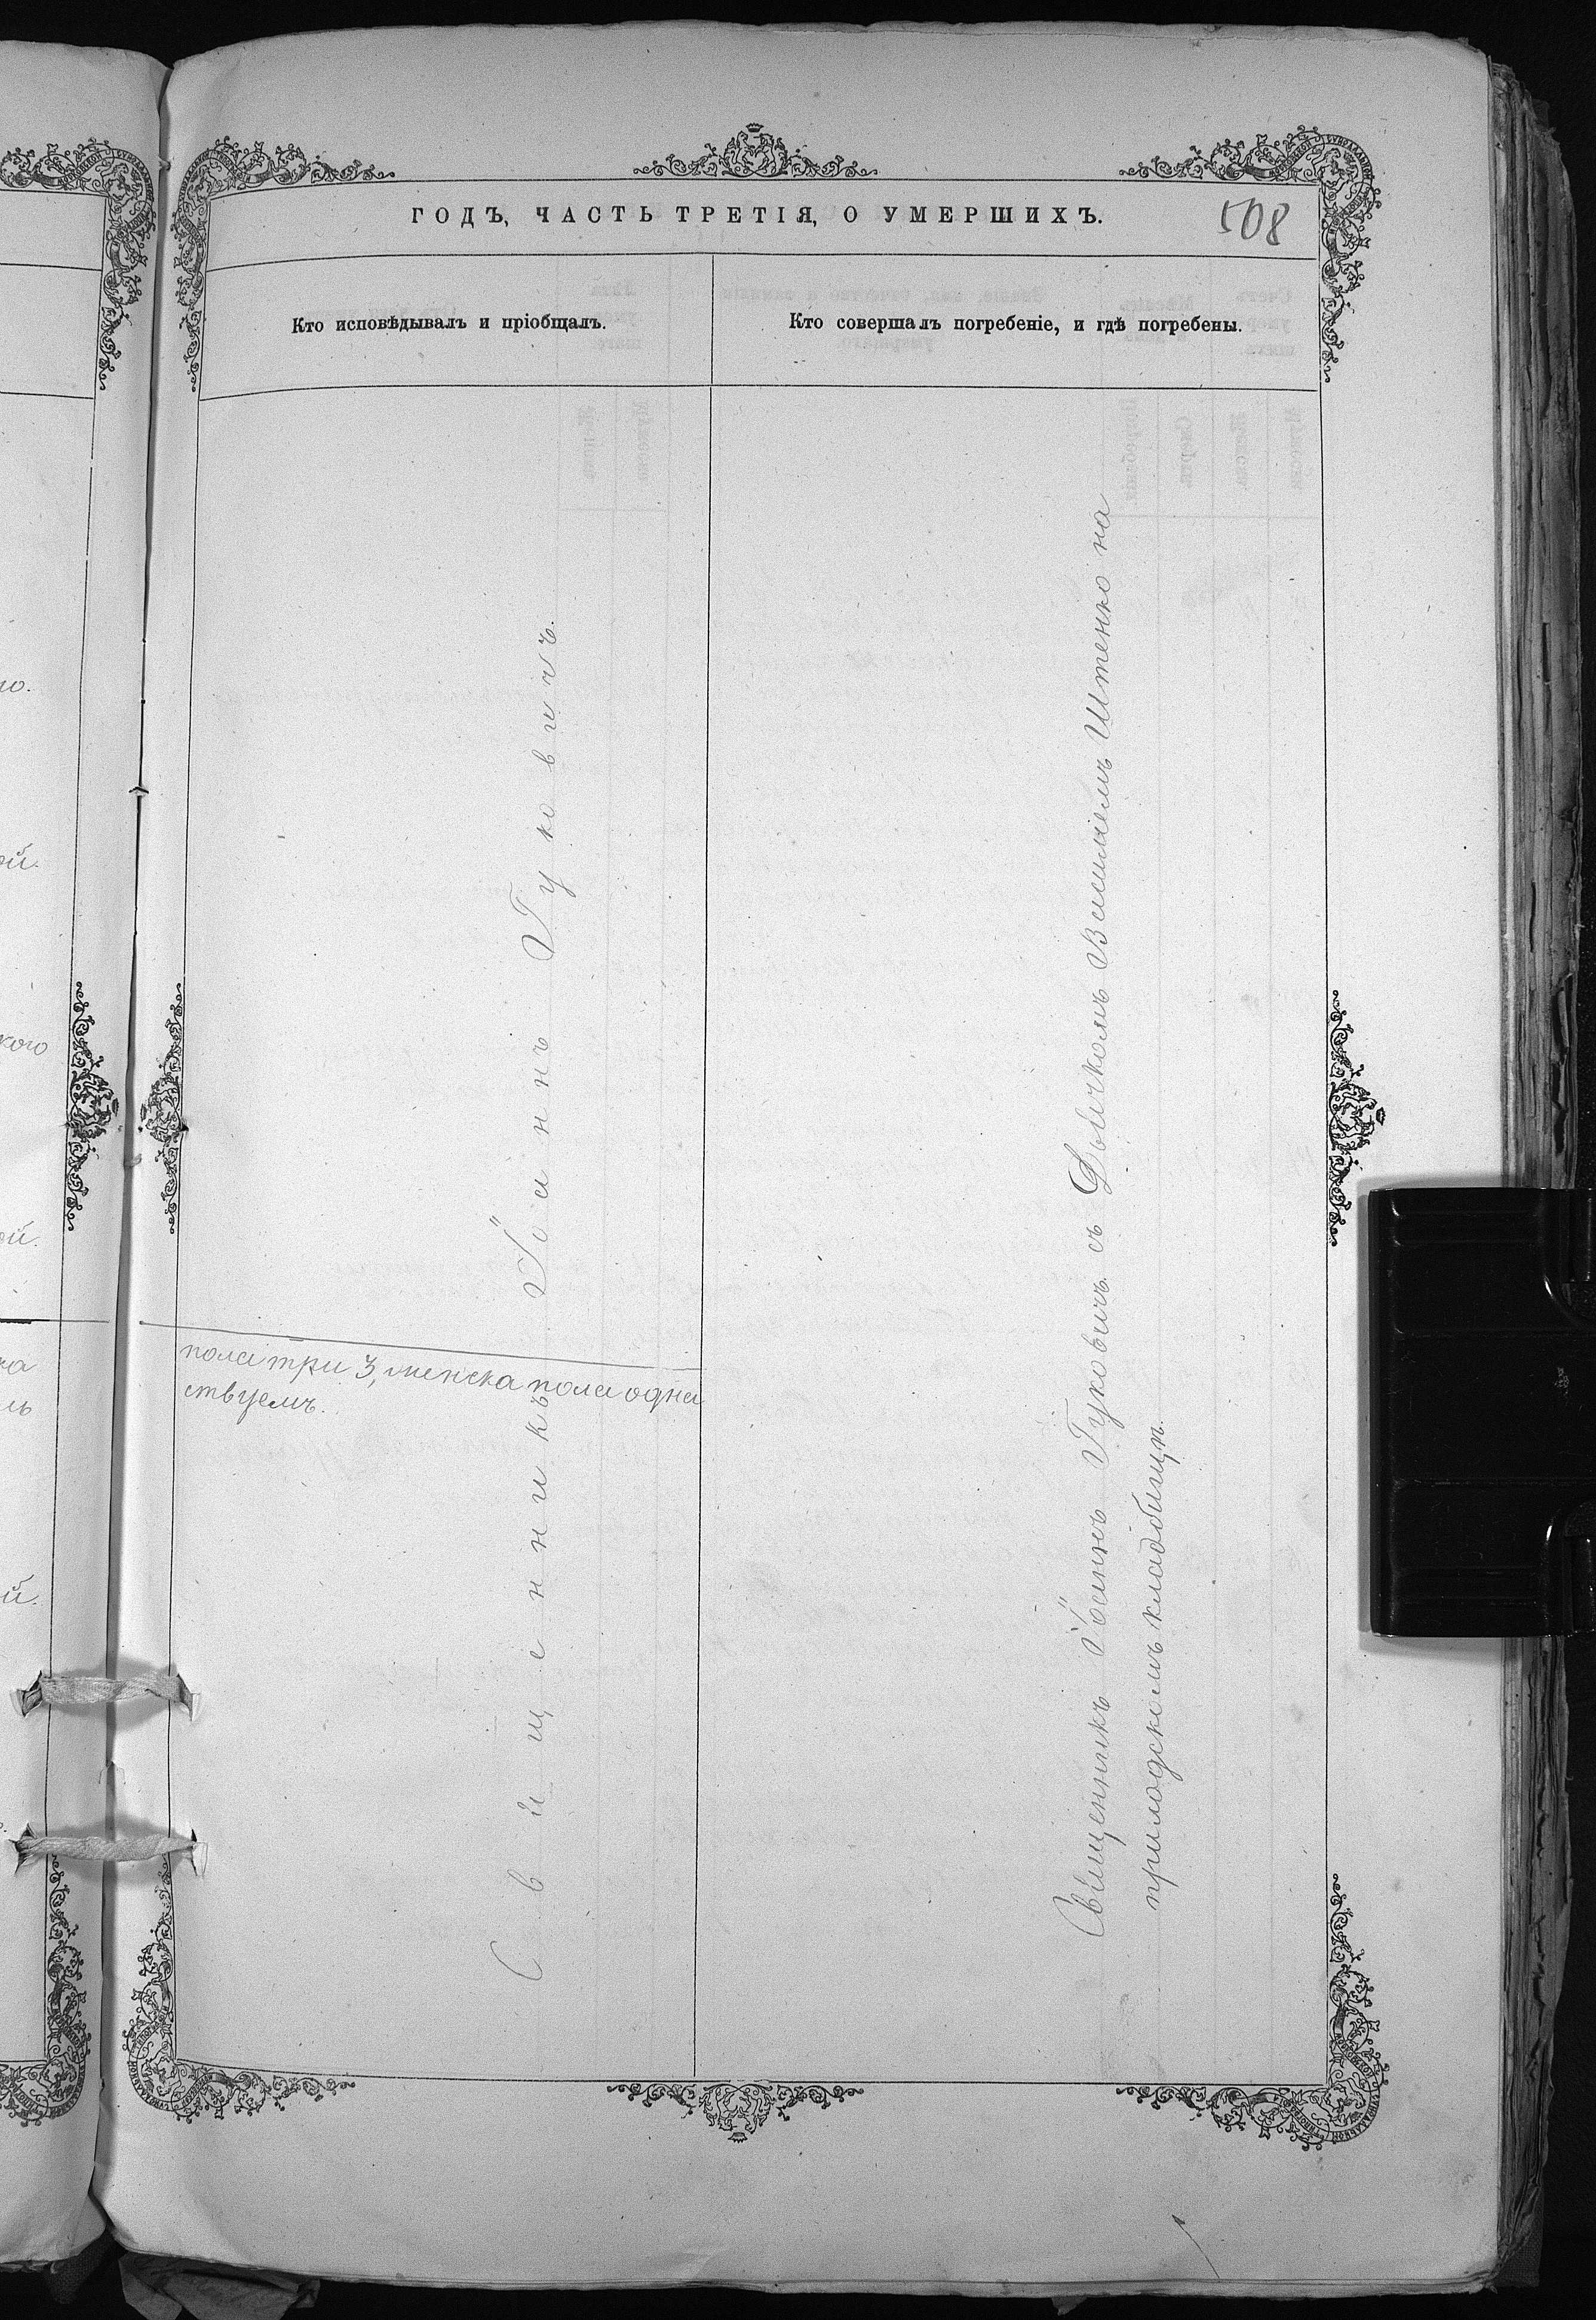 ГОДЪ, ЧАСТЬ ТРЕТІЯ, О УМЕРШИХЪ.
508
Кто исповѣдывалъ и пріобщалъ.
Кто совершалъ погребеніе, и гдѣ погребены.
Священникъ Іоаннъ Гуковичъ.
пола три 3, женска пола одна
ствуемъ.
Священникъ Іоаннъ Гуковичъ съ Дьячкомъ Василіемъ Штенко на
приходскомъ кладбищѣ.
ю.
ой.
кого
ой.
ка
ль
й.